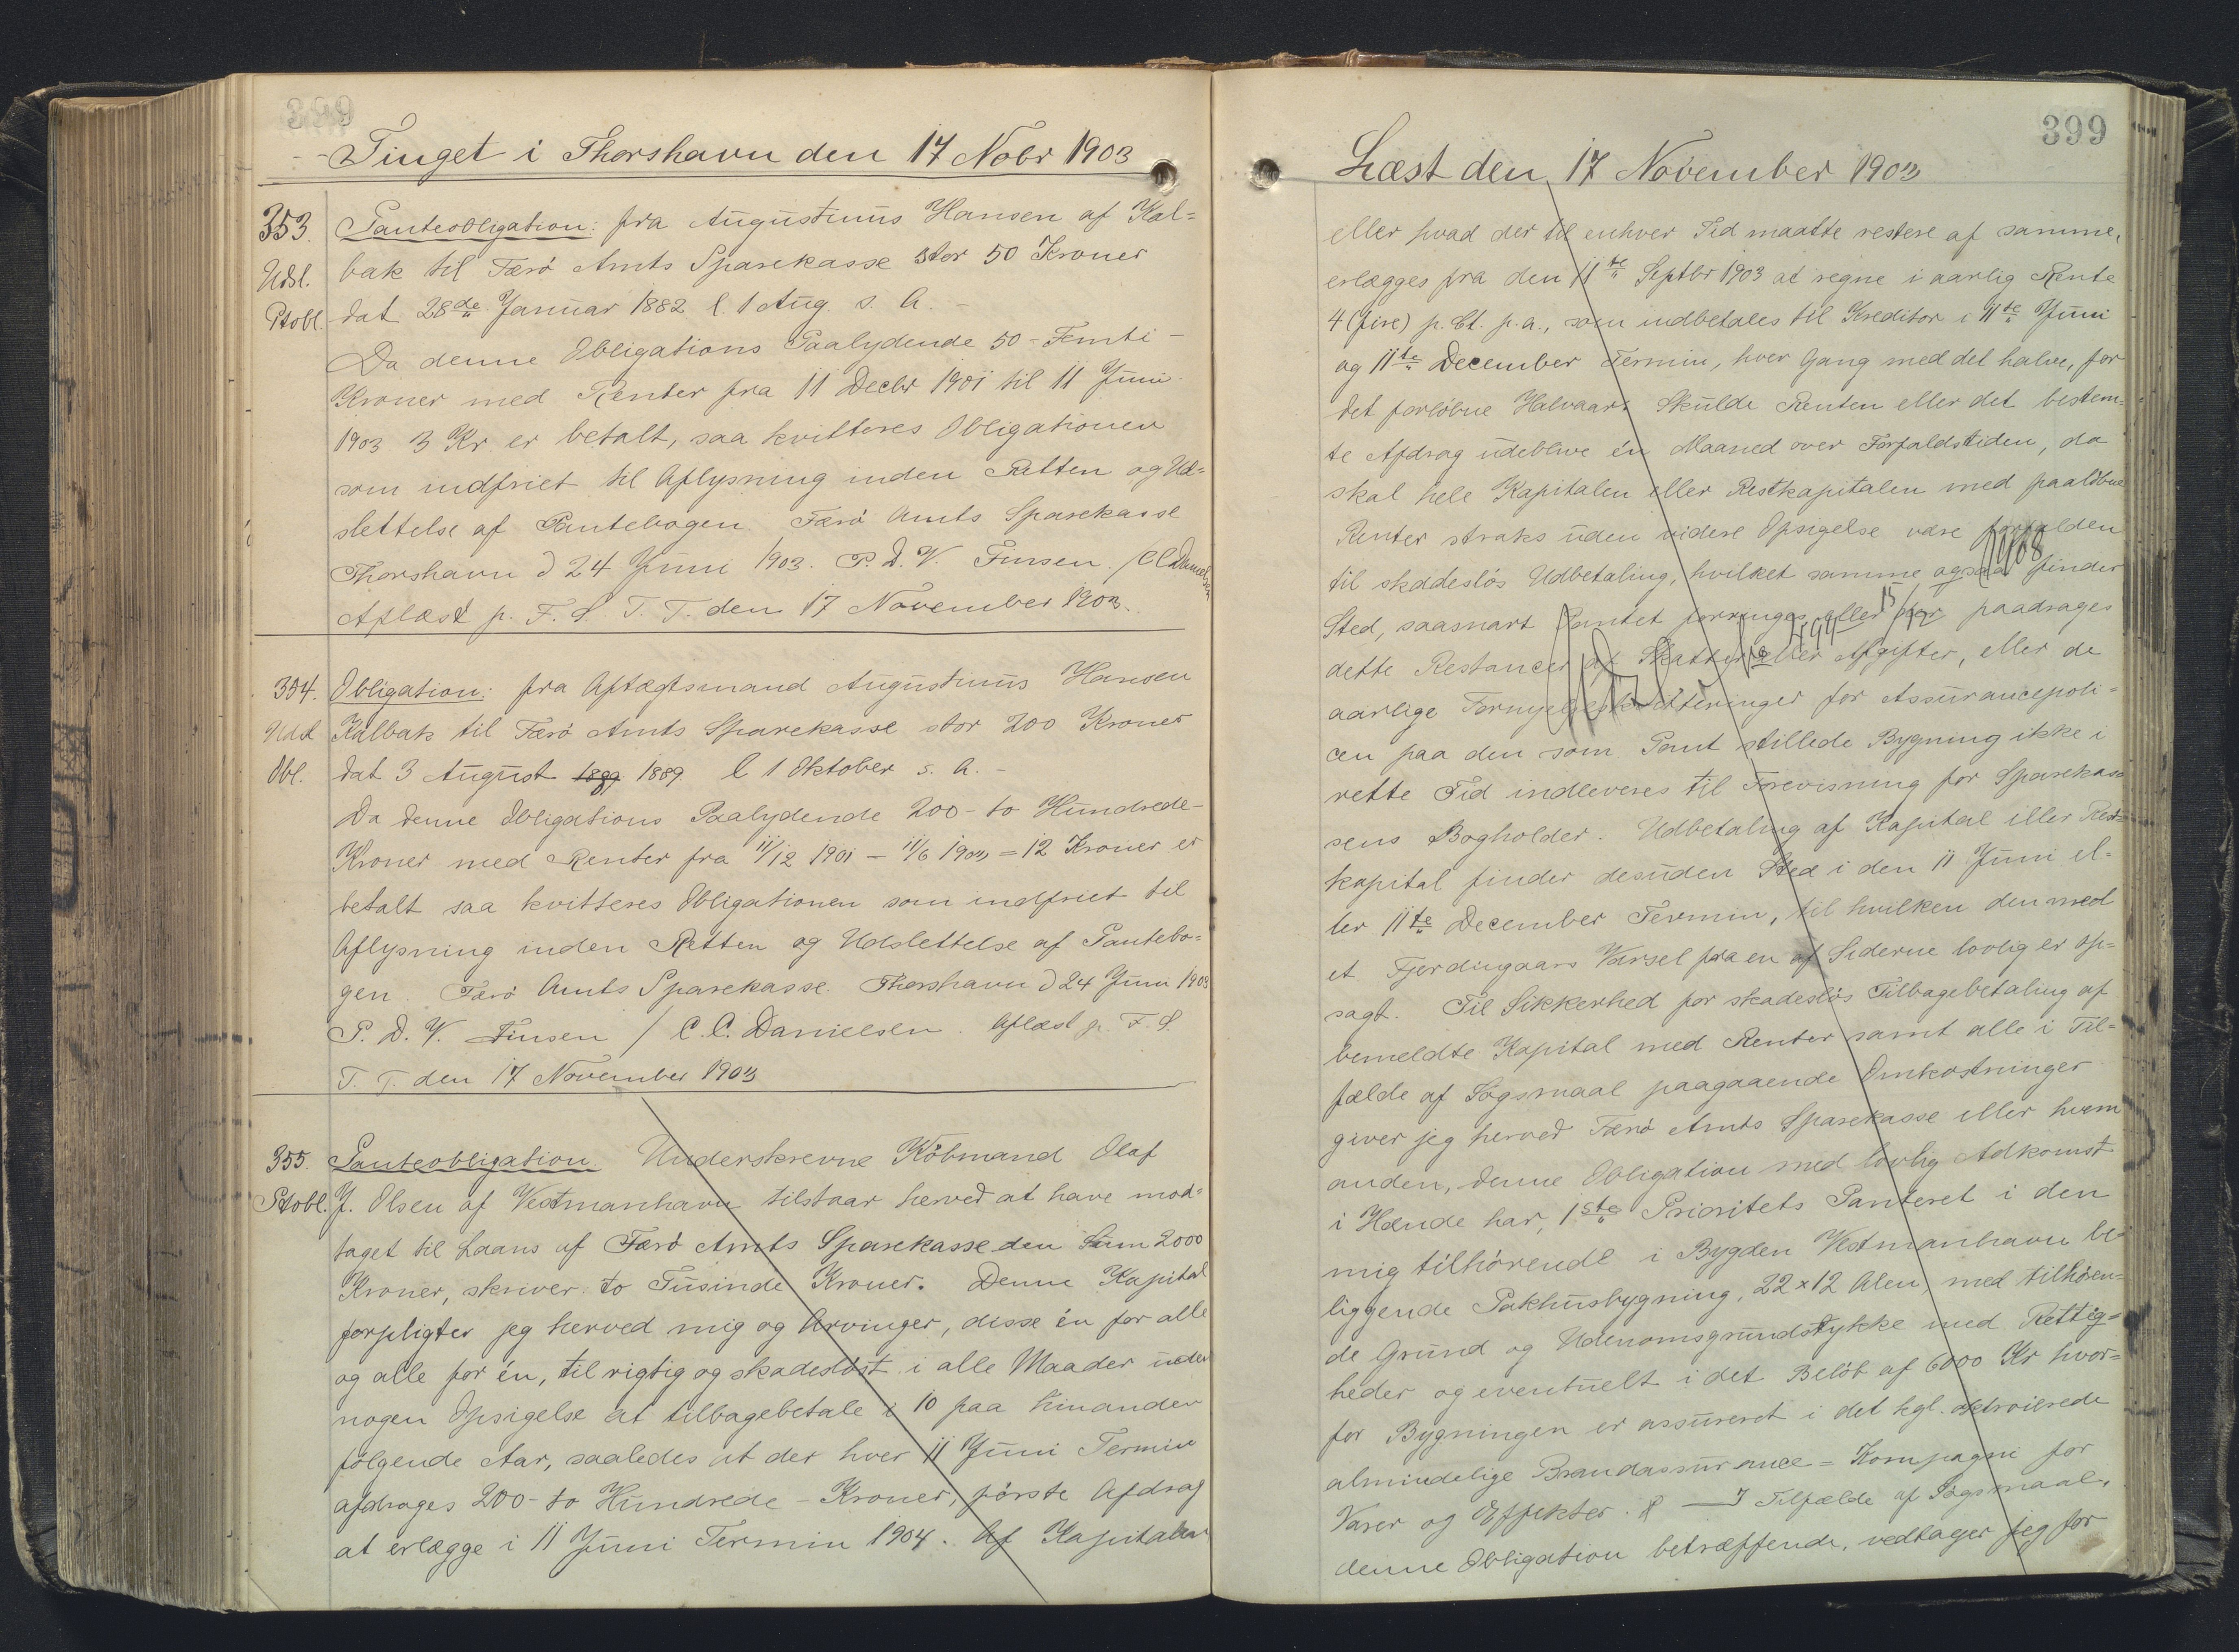 Tinget i Thorshavn den 17 Nobr 1903
353. Panteobligation: fra Augustinus Hansen af Kal=
Udsl. bak til Færö Amts Sparekasse stor 50 Kroner
Ptobl. dat 28de Januar 1882 l. 1 Aug. s. A. -
Da denne Obligations Paalydende 50 - Femti -
Kroner med Renter fra 11 Decbr 1901 til 11 Juni
1903 3 Kr. er betalt, saa kvitteres Obligationen
som indfriet til Aflysning inden Retten og Ud=
slettelse af Pantebogen. Færö Amts Sparekasse
Thorshavn d 24 Juni 1903. P. D. V. Finsen. / C C Danielsen
Aflæst p. F. S. T. T. den 17 November 1903.
354. Obligation: fra Aftægtsmand Augustinus Hansen
Udsl Kalbak til Færö Amts Sparekasse stor 200 Kroner
Obl. dat 3 August 1889 l 1 Oktober s. A. -
Da denne Obligations Paalydende 200 - to Hundrede -
Kroner med Renter fra 11/12 1901 - 11/6 1903 = 12 Kroner er
betalt saa kvitteres Obligationen som indfriet til
Aflysning inden Retten og Udslettelse af Pantebo=
gen. Færö Amts Sparekasse. Thorshavn d 24 Juni 1903
P. D. V. Finsen / C. C. Danielsen. Aflæst p. F. S.
T. T. den 17 November 1903
355. Panteobligation Underskrevne Köbmand Olaf
Ptobl. J. Olsen af Vestmanhavn tilstaar herved at have mod=
taget til Laans af Færö Amts Sparekasse den Sum 2000
Kroner, skriver to Tusinde Kroner. Denne Kapital
forpligter jeg herved mig og Arvinger, disse én for alle
og alle for én, til rigtig og skadeslöst i alle Maader uden
nogen Opsigelse at tilbagebetale i 10 paa hinanden
fölgende Aar, saaledes at der hver 11 Juni Termin
afdrages 200 - to Hundrede - Kroner, förste Afdrag
at erlægge i 11 Juni Termin 1904. Af Kapitalen
399
Læst den 17 November 1903
eller hvad der til enhver Tid maatte restere af samme,
erlægges fra den 11te Septbr 1903 at regne i aarlig Rente
4 (fire) p. Ct. p. a., som indbetales til Kreditor i 11te Juni
og 11te December Termin, hver Gang med det halve, for
det forlöbne Halvaar. Skulde Renten eller det bestem=
te Afdrag udeblive én Maaned over Forfaldstiden, da
skal hele Kapitalen eller Restkapitalen med paalöbne
Renter straks uden videre Opsigelse være forfalden
til skadeslös Udbetaling, hvilket samme ogsaa finder
Sted, saasnart Pantet forringes eller der paadrages
dette Restancer af Skatter eller Afgifter, eller de
aarlige Fornyelseskvitteringer for Assurancepoli=
cen paa den som Pant stillede Bygning ikke i
rette Tid indleveres til Forevisning for Sparekas=
sens Bogholder. Udbetaling af Kapital eller Rest=
kapital finder desuden Sted i den 11 Juni el=
ler 11te December Termin, til hvilken den med
et Fjerdingaars Varsel fra en af Siderne lovlig er op=
sagt. Til Sikkerhed for skadeslös Tilbagebetaling af
bemeldte Kapital med Renter samt alle i Til=
fælde af Sögsmaal paagaaende Omkostninger
giver jeg herved Færö Amts Sparekasse eller hvem
anden, denne Obligation med lovlig Adkomst
i Hænde har, 1ste Prioritets Panteret i den
mig tilhörende i Bygden Vestmanhavn be=
liggende Pakhusbygning, 22 x 12 Alen, med tilhören=
de Grund og Udenomsgrundstykke med Rettig=
heder og eventuelt i det Belöb af 6000 Kr hvor=
for Bygningen er assureret i det kgl. oktroierede
almindelige Brandassurance = Kompagni for
Varer og Effekter. — I Tilfælde af Sögsmaal,
denne Obligation betræffende, vedtager jeg for